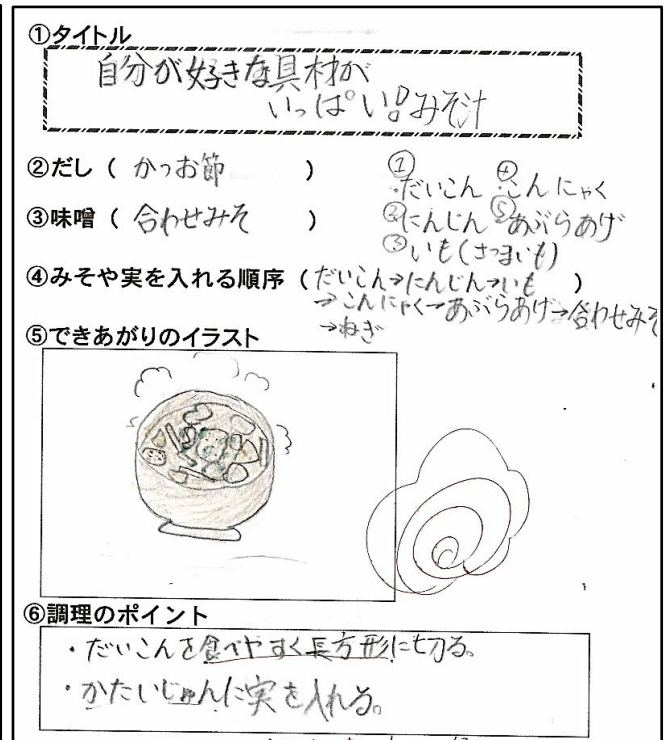 ①タイトル
自分が好きな具材が
いっぱい!みそ汁
②だし ( かつお節 )
③味噌 ( 合わせみそ )
①・だいこん ④・こんにゃく
②にんじん ⑤あぶらあげ
③いも(さつまいも)
④みそや実を入れる順序 (だいこん→にんじん→いも )
→こんにゃく→あぶらあげ→合わせみそ
→ねぎ
⑤できあがりのイラスト
⑥調理のポイント
・だいこんを食べやすく長方形に切る。
・かたいじゅんに実を入れる。